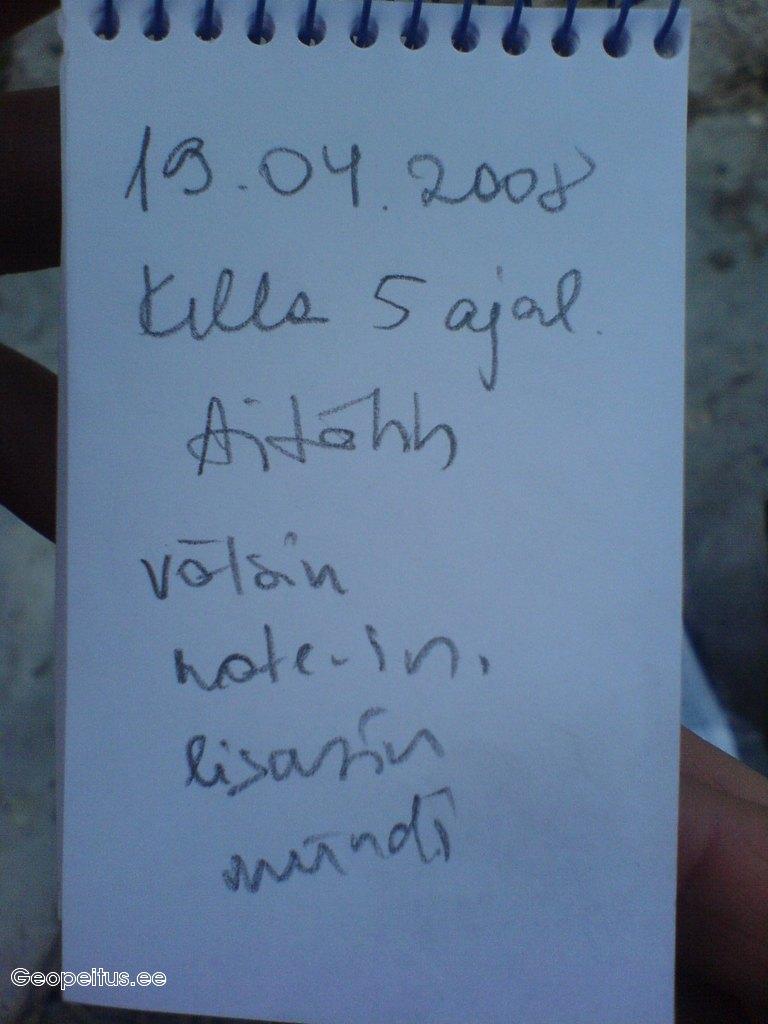 19.04.2008
Kella 5 ajal.
Aitähh
võtsin
note-in.
lisasin
mündi
Geopeitus.ee